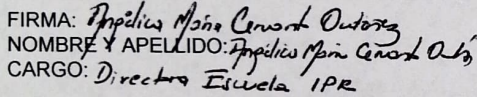 FIRMA: Angélica María Cervant Ontorez
NOMBRE Y APELLIDO: Angélica María Cervant
CARGO: Directora Escuela IPR